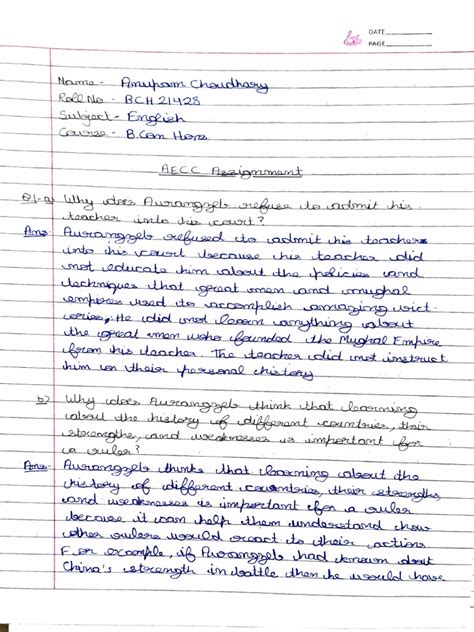 DATE
PAGE
Name - Anupam Choudhary
Roll No - BCH 21428
Subject - English
Course - B.Com Hons
AECC Assignment
Q1-a) Why does Aurangzeb refuse to admit his
teacher into his court?
Ans Aurangzeb refused to admit his teachers
into his court because his teacher did
not educate him about the policies and
techniques that great men and mughal
empires used to accomplish amazing vict-
ories, He did not learn anything about
the great men who founded the Mughal Empire
from his teacher. The teacher did not instruct
him on their personal history
b) Why does Aurangzeb think that learning
about the history of different countries, their
strengths, and weaknesses is important for
a ruler?
Ans- Aurangzeb thinks that learning about the
history of different countries, their strengths,
and weaknesses is important for a ruler
because it can help them understand how
other rulers would react to their actions
For example, if Aurangzeb had known about
China's strength in battle then he would have